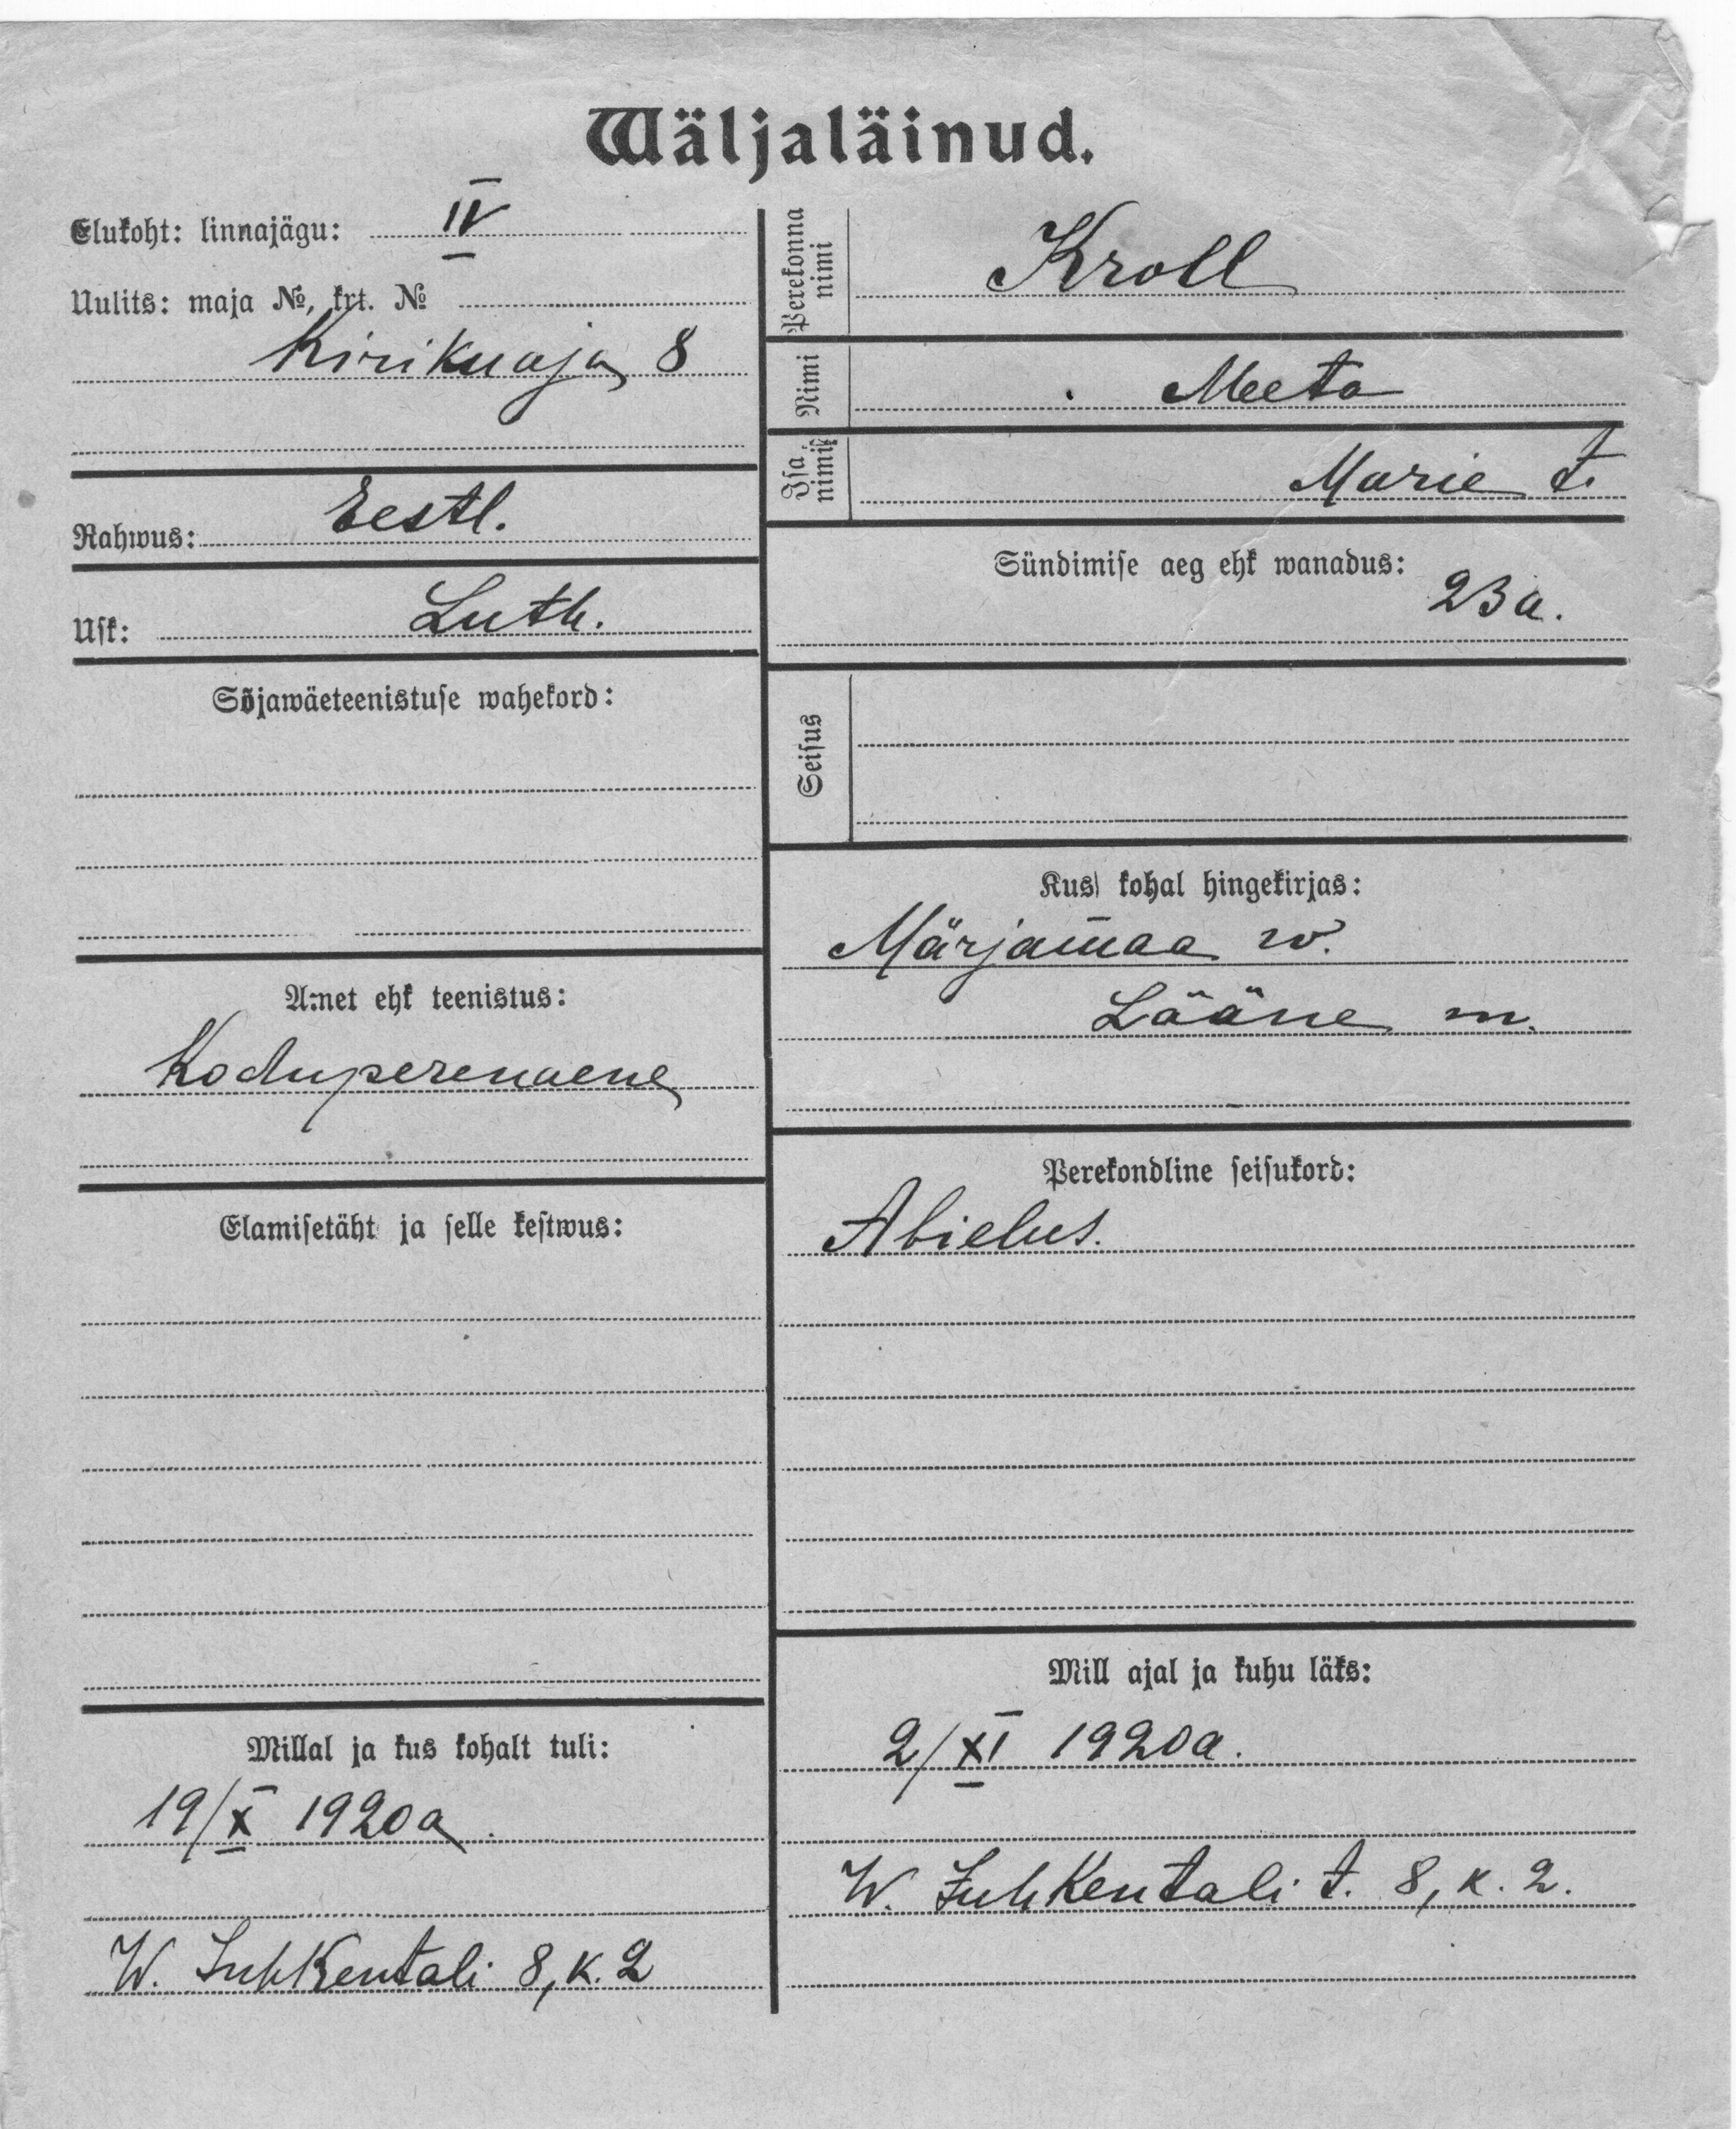 Wäljaläinud.
Elukoht: linnajägu: IV
Uulits: maja №, krt. №
Kirikuaja 8
Rahwus: Eestl.
Usk: Luth.
Sõjawäeteenistuse wahekord:
Amet ehk teenistus:
Koduperenaene
Elamisetäht ja selle kestwus:
Millal ja kus kohalt tuli:
19/X 1920a.
W. Juhkentali 8, k. 2
Perekonna nimi
Kroll
Nimi
Meeta
Isa nimi
Marie t.
Sündimise aeg ehk wanadus:
23 a.
Seisus
Kus kohal hingekirjas:
Märjam̄aa w.
Lääne m.
Perekondline seisukord:
Abielus.
Mill ajal ja kuhu läks:
2/XI 1920a.
W. Juhkentali t. 8, k. 2.